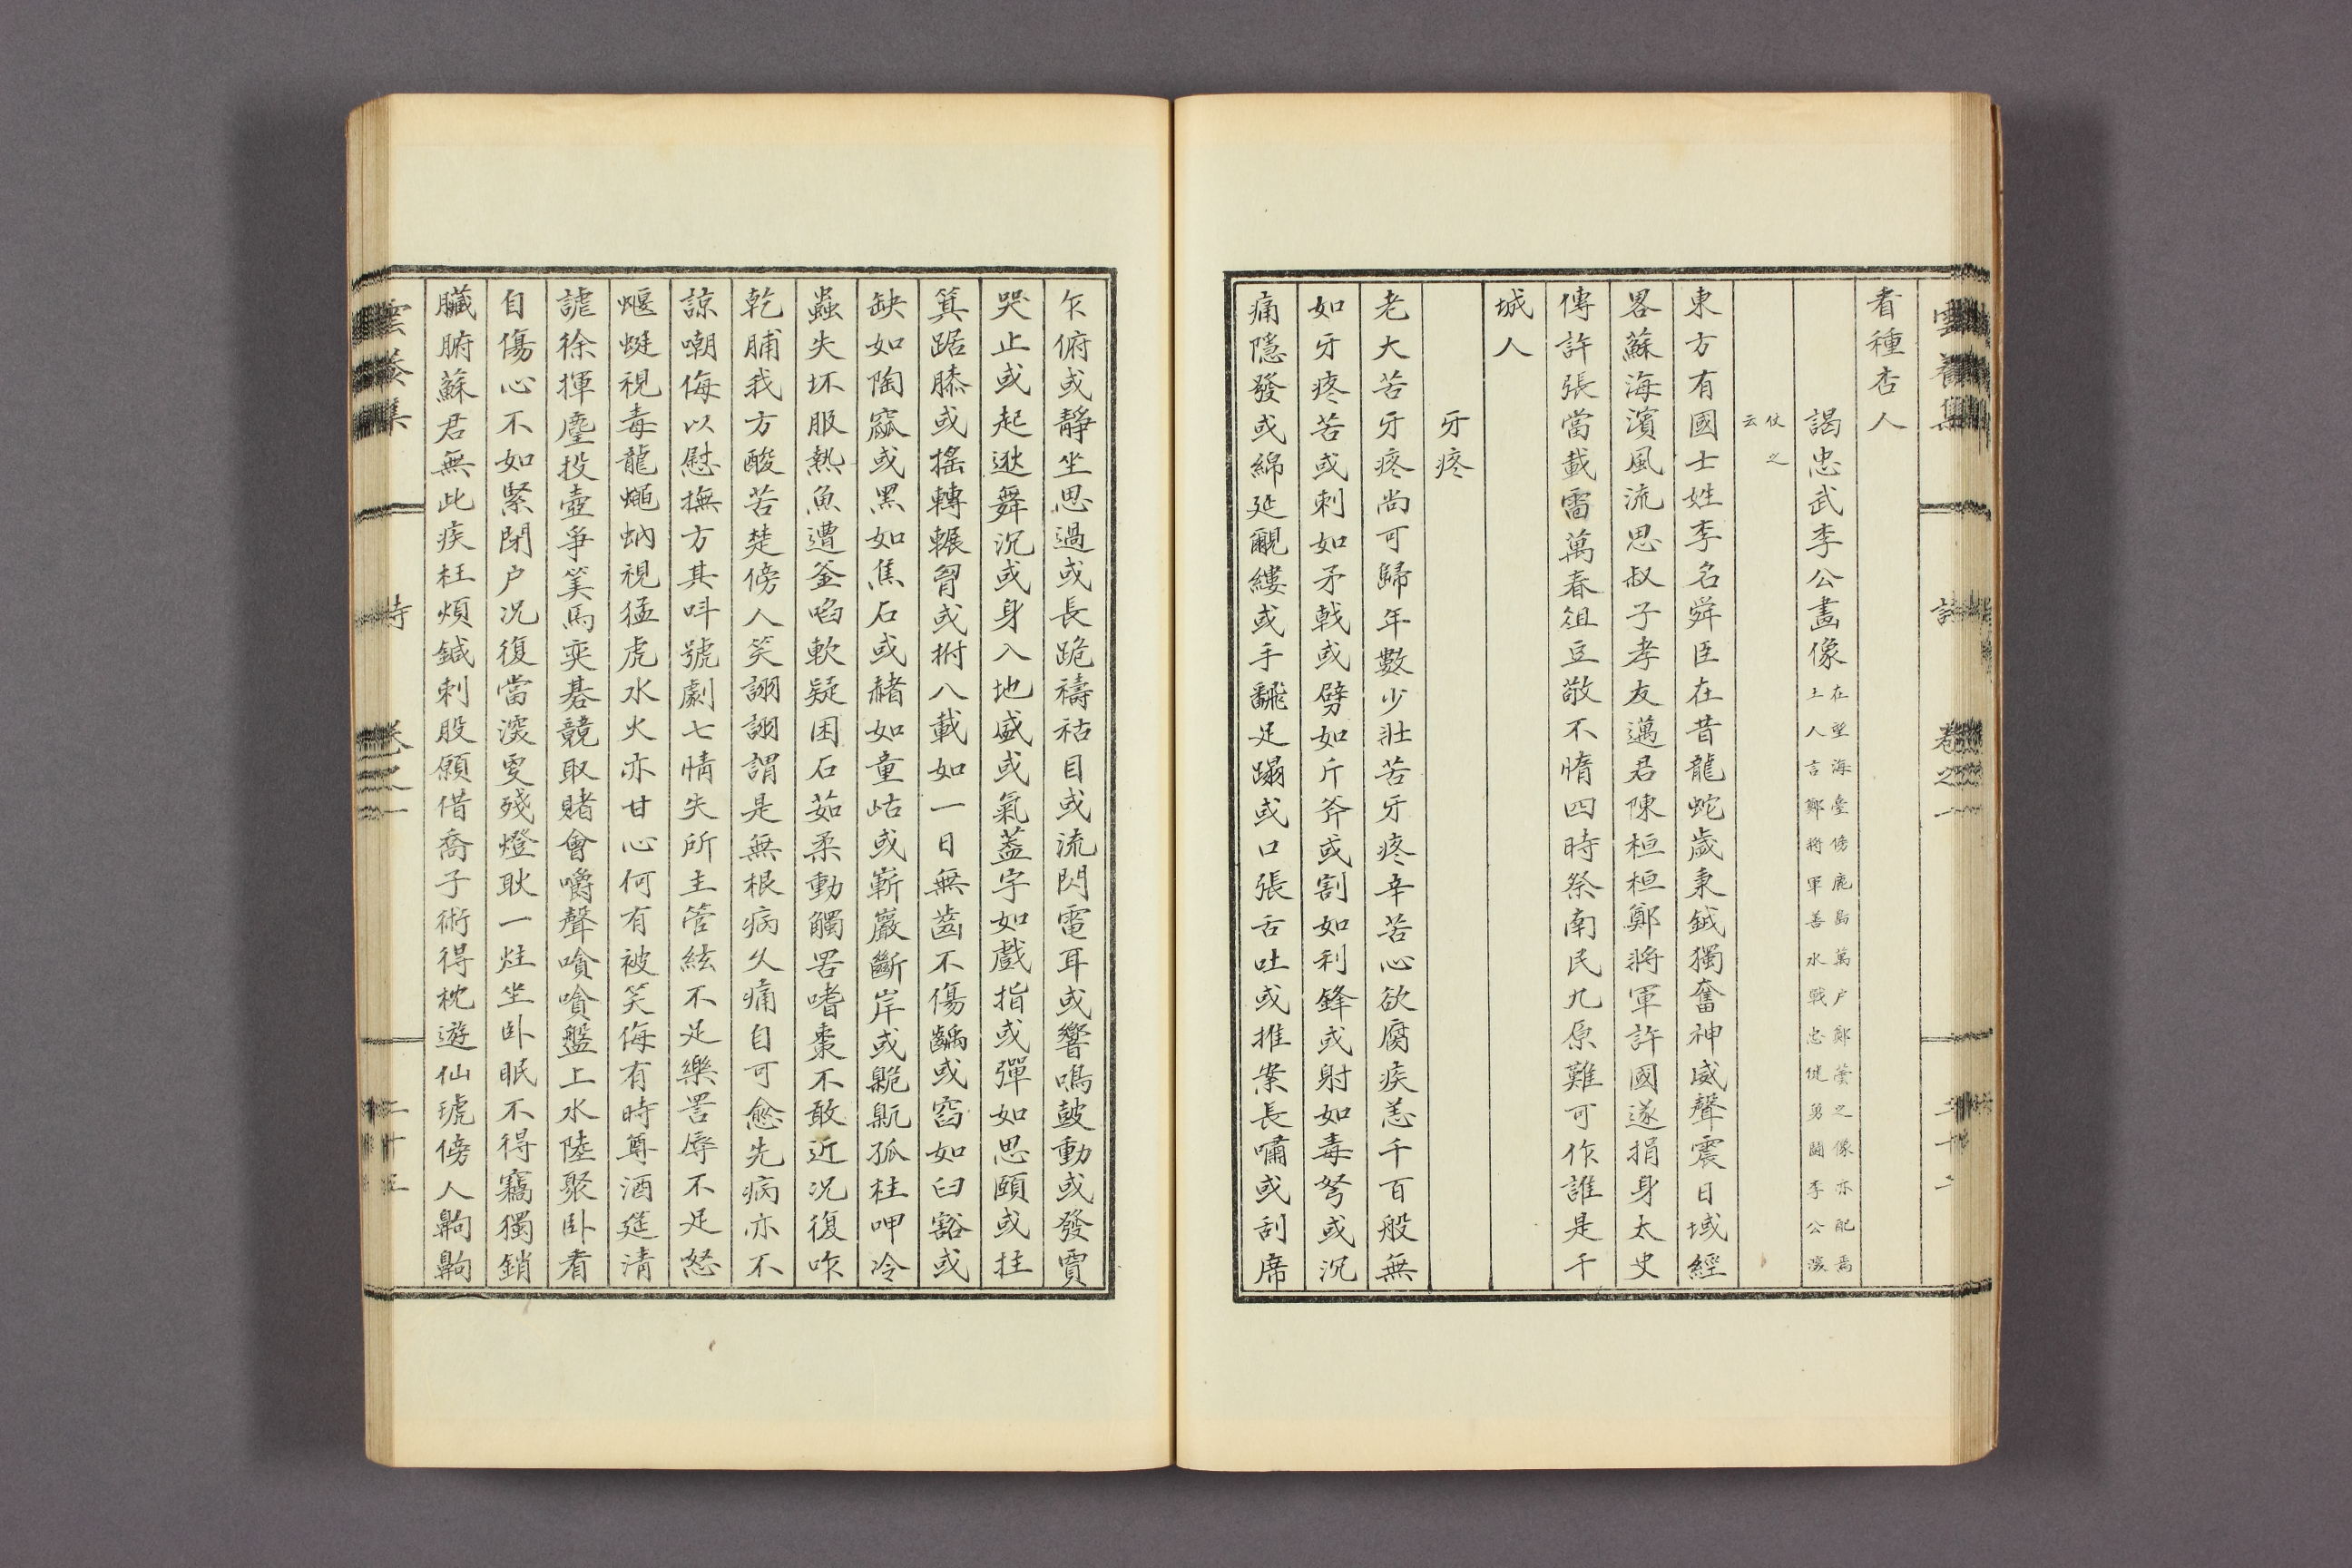 雲養集 詩 卷之一 二十二
看種杏人
謁忠武李公畫像 在望海臺傍鹿島萬户鄭運之像亦配焉
土人言鄭將軍善水戰忠健勇鬪李公深
仗之
云
東方有國士姓李名舜臣在昔龍蛇歲秉鉞獨奮神威聲震日域經
畧蘇海濱風流思叔子孝友邁君陳桓桓鄭將軍許國遂捐身太史
傳許張當載雷萬春俎豆敬不惰四時祭南民九原難可作誰是千
城人
牙疼
老大苦牙疼尚可歸年數少壯苦牙疼辛苦心欲腐疾恙千百般無
如牙疼苦或刺如矛戟或劈如斤斧或割如利鋒或射如毒弩或沉
痛隱發或綿延覼縷或手飜足蹋或口張舌吐或推案長嘯或刮席
乍俯或靜坐思過或長跪禱祜目或流閃電耳或響鳴鼓動或發賈
哭止或起逖舞沉或身入地盛或氣蓋宇如戲指或彈如思頤或拄
箕踞膝或搖轉輾胷或拊八載如一日無齒不傷齲或窞如臼豁或
缺如陶窳或黑如焦石或赭如童岵或嶄巖斷岸或臲卼孤柱呷冷
蟲失坏服熱魚遭釜啗軟疑困石茹柔動觸罟嗜棗不敢近況復咋
乾脯我方酸苦楚傍人笑詡詡謂是無根病久痛自可愈先病亦不
諒嘲侮以慰撫方其呌號劇七情失所主管絃不足樂詈辱不足怒
蝘蜓視毒龍蠅蚋視猛虎水火亦甘心何有被笑侮有時尊酒筵淸
謔徐揮麈投壺爭筭馬奕碁競取賭會嚼聲喰喰盤上水陸聚卧看
自傷心不如緊閉户况復當深叟殘燈耿一炷坐卧眠不得竊獨銷
臟腑蘇君無此疾枉煩鍼刺股願借喬子術得枕遊仙琥傍人齁齁
雲養集 詩 卷之一 二十三